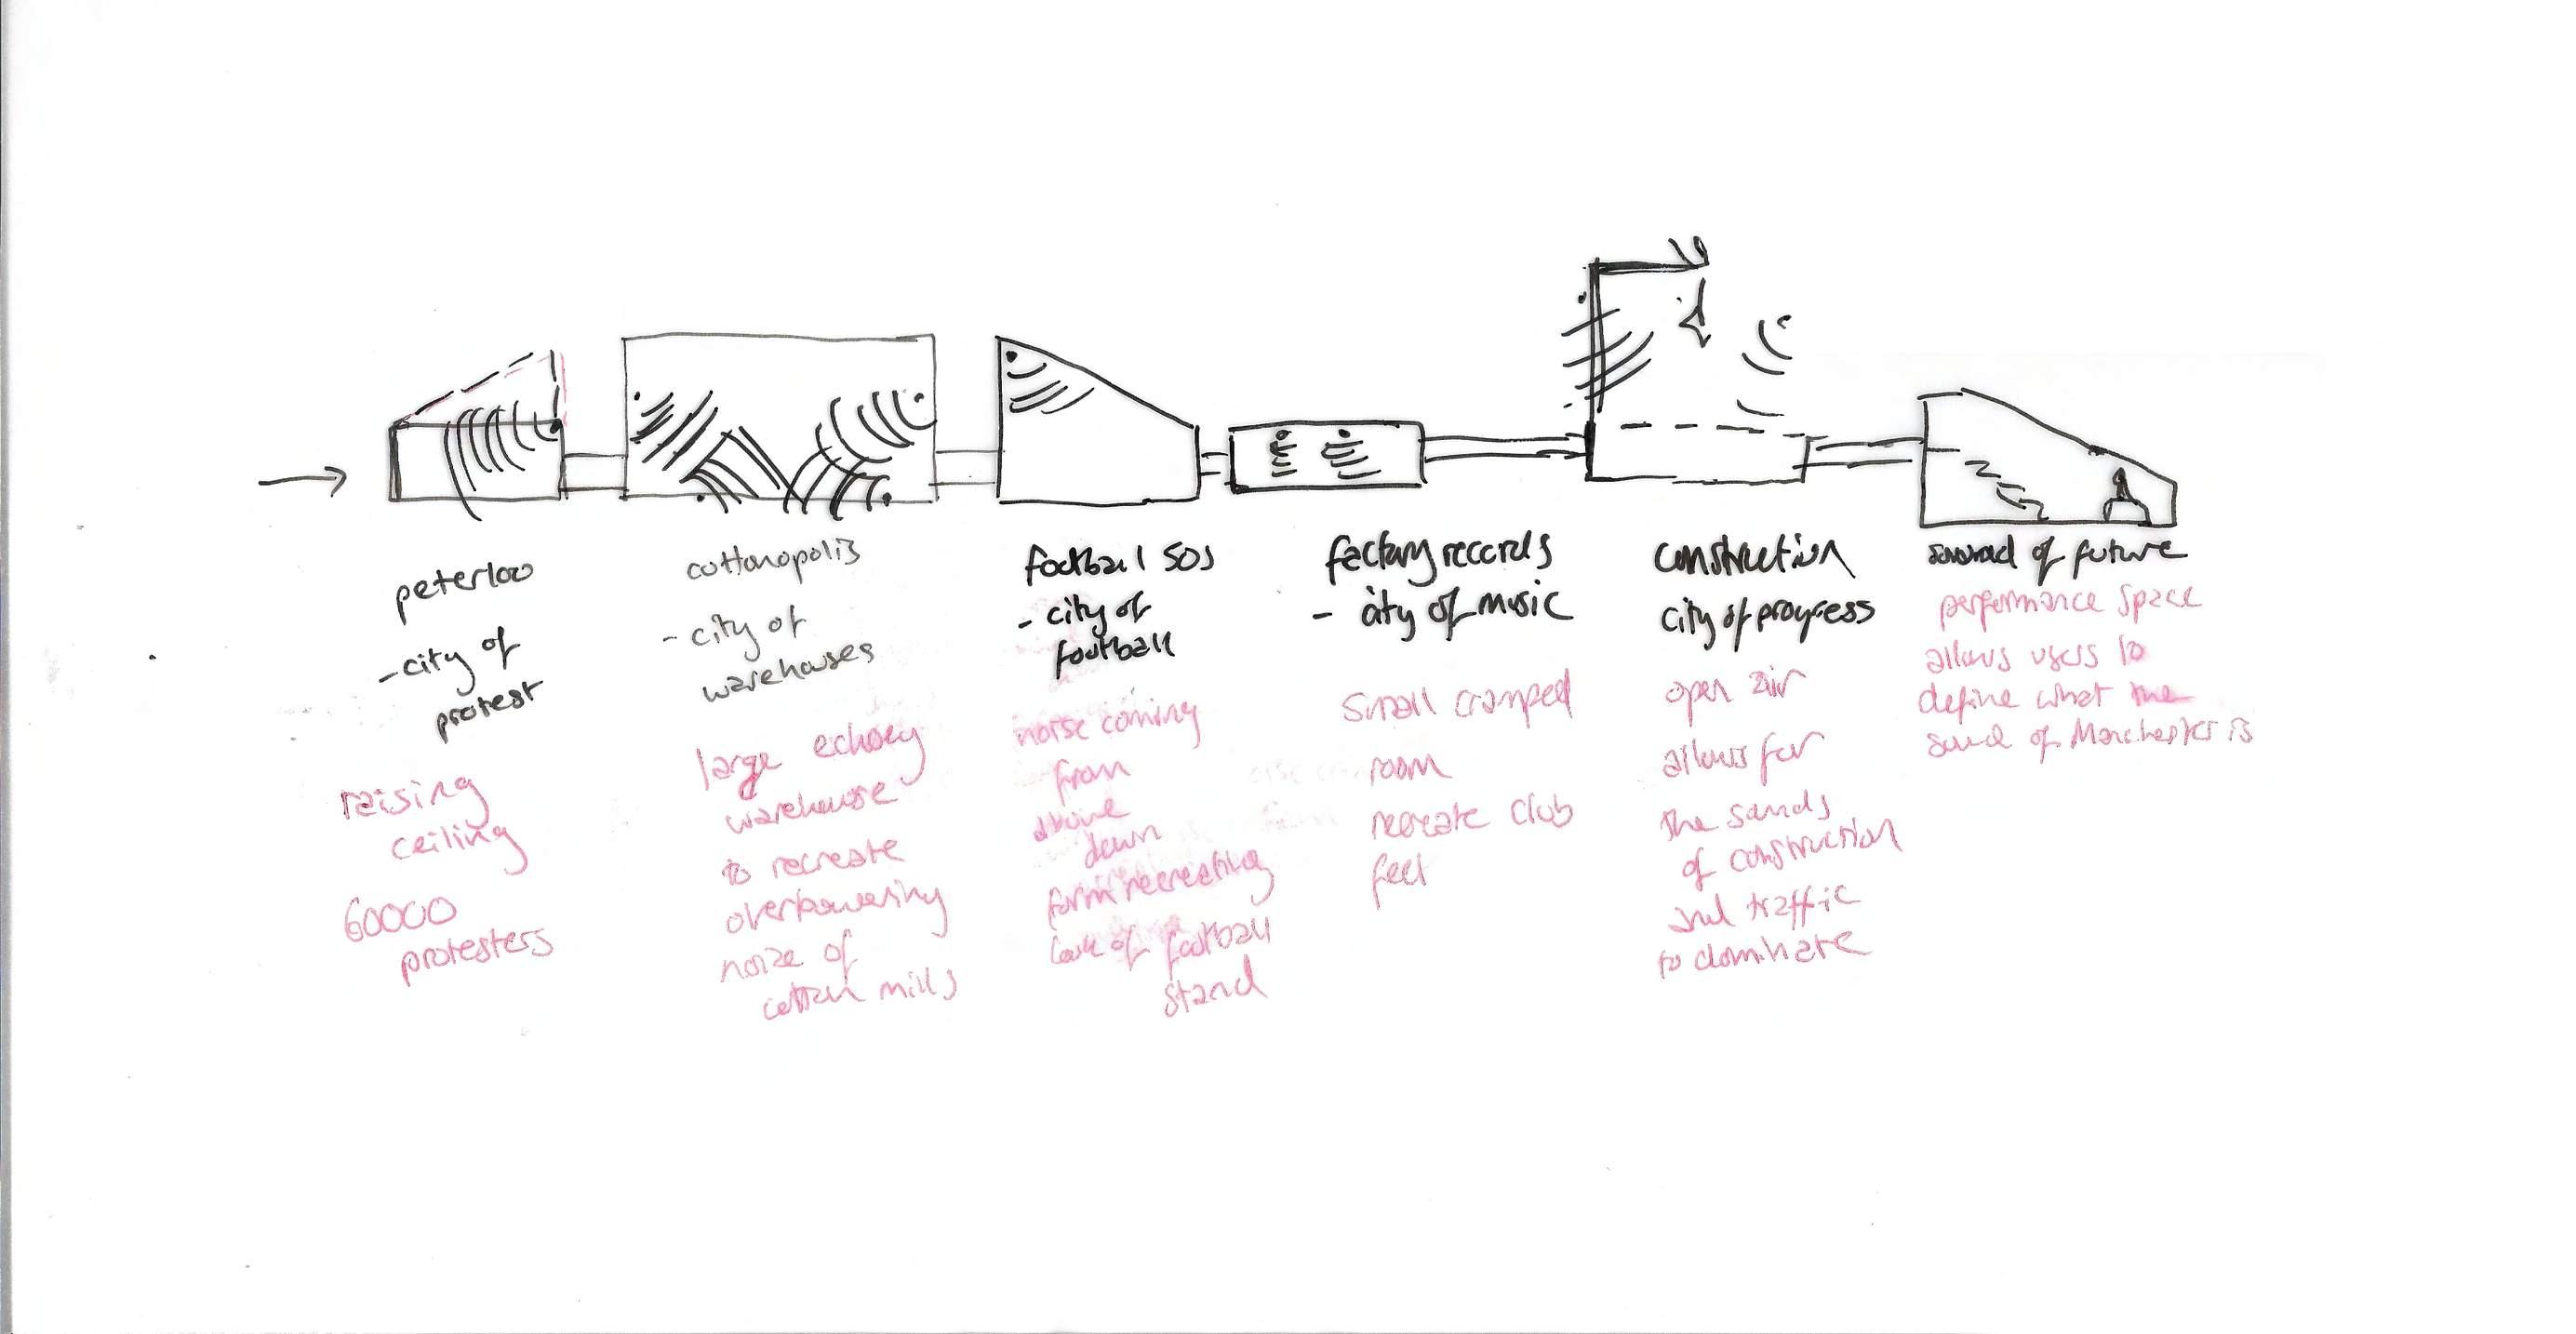 peterloo
- city of
protest
raising
ceiling
60000
protesters
cottonopolis
- city of
warehouses
large echoey
warehouse
to recreate
overpowering
noize of
cotton mills
football 50s
- city of
football
noise coming
from
above
down
form recreating
look of football
stand
factory records
- city of music
small cramped
room
recreate club
feel
construction
city of progress
open air
allows for
the sounds
of construction
and traffic
to dominate
sound of future
performance space
allows users to
define what the
sound of Manchester is